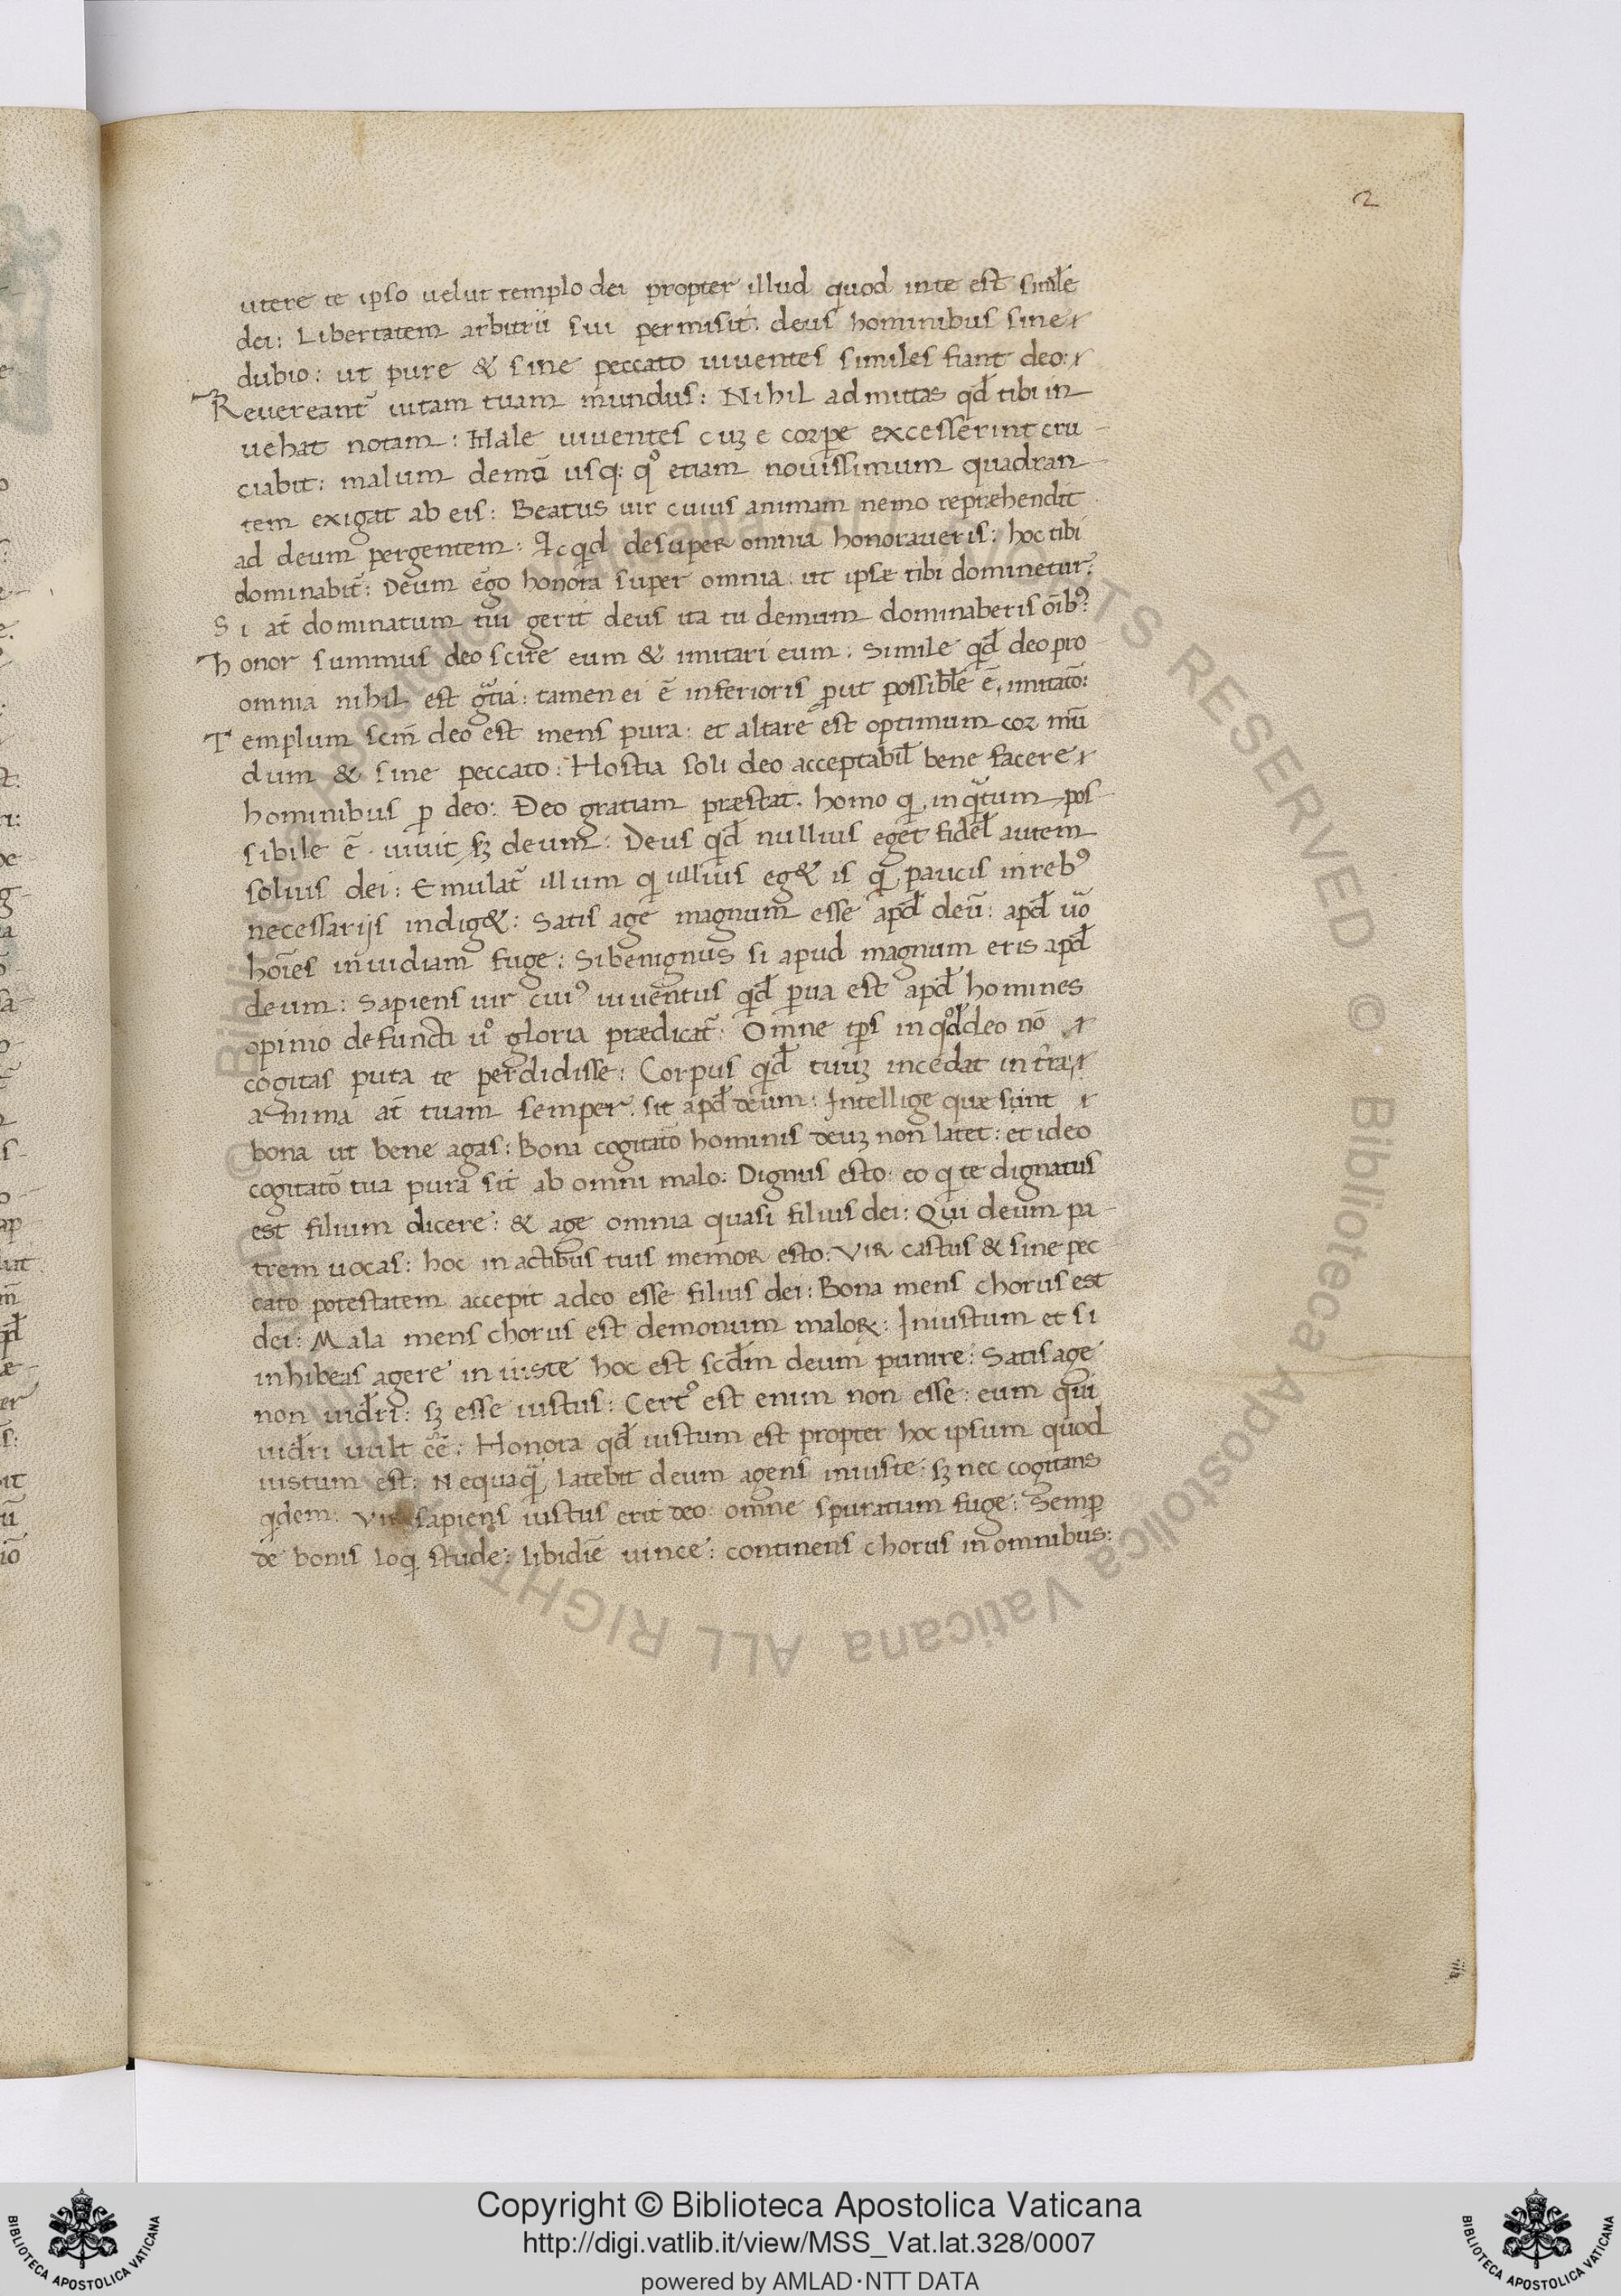 2
utere te ipso uelut templo dei propter illud quod in te est simile
dei: Libertatem arbitrii sui permisit. deus hominibus sine
dubio: ut pure & sine peccato uiuentes similes fiant deo:
Reuereant̃ uitam tuam mundus: Nihil admittas qđ tibi in
uehat notam: Male uiuentes cuꝫ e corꝑe excesserint cru-
ciabit: malum demõ usq: qͦ etiam nouissimum quadran-
tem exigat ab eis: Beatus uir cuius animam nemo repræhendit
ad deum pergentem: Qcqd desuper omnia honoraueris: hoc tibi
dominabit̃: Deum ẽgo honora super omnia ut ipsæ tibi dominetur.
Si at̃ dominatum tui gerit deus ita tu demum dominaberis oĩbꝰ
Honor summus deo scire eum & imitari eum: Simile qđ deo pro
omnia nihil est gͣtia: tamen ei ẽ inferioris ꝓut possible ẽ imitatõ:
Templum scm̃ deo est mens pura: et altare est optimum cor mũ
dum & sine peccato: Hostia soli deo acceptabil̃ bene facere
hominibus p deo: Deo gratiam præstat. homo q inqͣtum pos-
sibile ẽ. uiuit sꝫ deum: Deus qđ nullius eget fidel̃ autem
solius dei: Emulat̃ illum q ullius eg& is q paucis in rebꝰ
necessarijs indig&: Satis age magnum esse apđ deũ: apđ uͦo
hoĩes inuidiam fuge: Si benignus si apud magnum eris apđ
deum: Sapiens uir cuiꝰ iuuentus qđ parua est apđ homines
opinio defuncti uͦ gloria prædicat̃: Omne tp̃s in qͦđ deo nõ
cogitas puta te perdidisse: Corpus qđ tuuꝫ incedat in tr̃a
anima at̃ tuam semper. sit apđ deum: Intellige quæ sunt
bona ut bene agas: Bona cogitatõ hominis deuꝫ non latet: et ideo
cogitatõ tua pura sit ab omni malo: Dignus esto: eo q te dignatus
est filium dicere: & age omnia quasi filius dei: Qui deum pa-
trem uocas: hoc in actibus tuis memor esto: Vir castus & sine pec
cato potestatem accepit adeo esse filius dei: Bona mens chorus est
dei: Mala mens chorus est demonum maloꝝ: Iniustum et si
inhibeas agere iniuste hoc est scdm̃ deum punire: Satis age
non uid̃ri: sꝫ esse iustus: Certꝰ est enim non esse: eum qui
uid̃ri uult cẽ: Honora qđ iustum est propter hoc ipsum quod
iustum est: Nequaq̃ latebit deum agens iniuste: sꝫ nec cogitans
qdem: Vir sapiens iustus erit deo: omne spuratiam fuge: Semꝑ
de bonis loq stude: libidiẽ uince: continens chorus in omnibus:
Copyright © Biblioteca Apostolica Vaticana
http://digi.vatlib.it/view/MSS_Vat.lat.328/0007
powered by AMLAD·NTT DATA
BIBLIOTECA APOSTOLICA VATICANA
BIBLIOTECA APOSTOLICA VATICANA